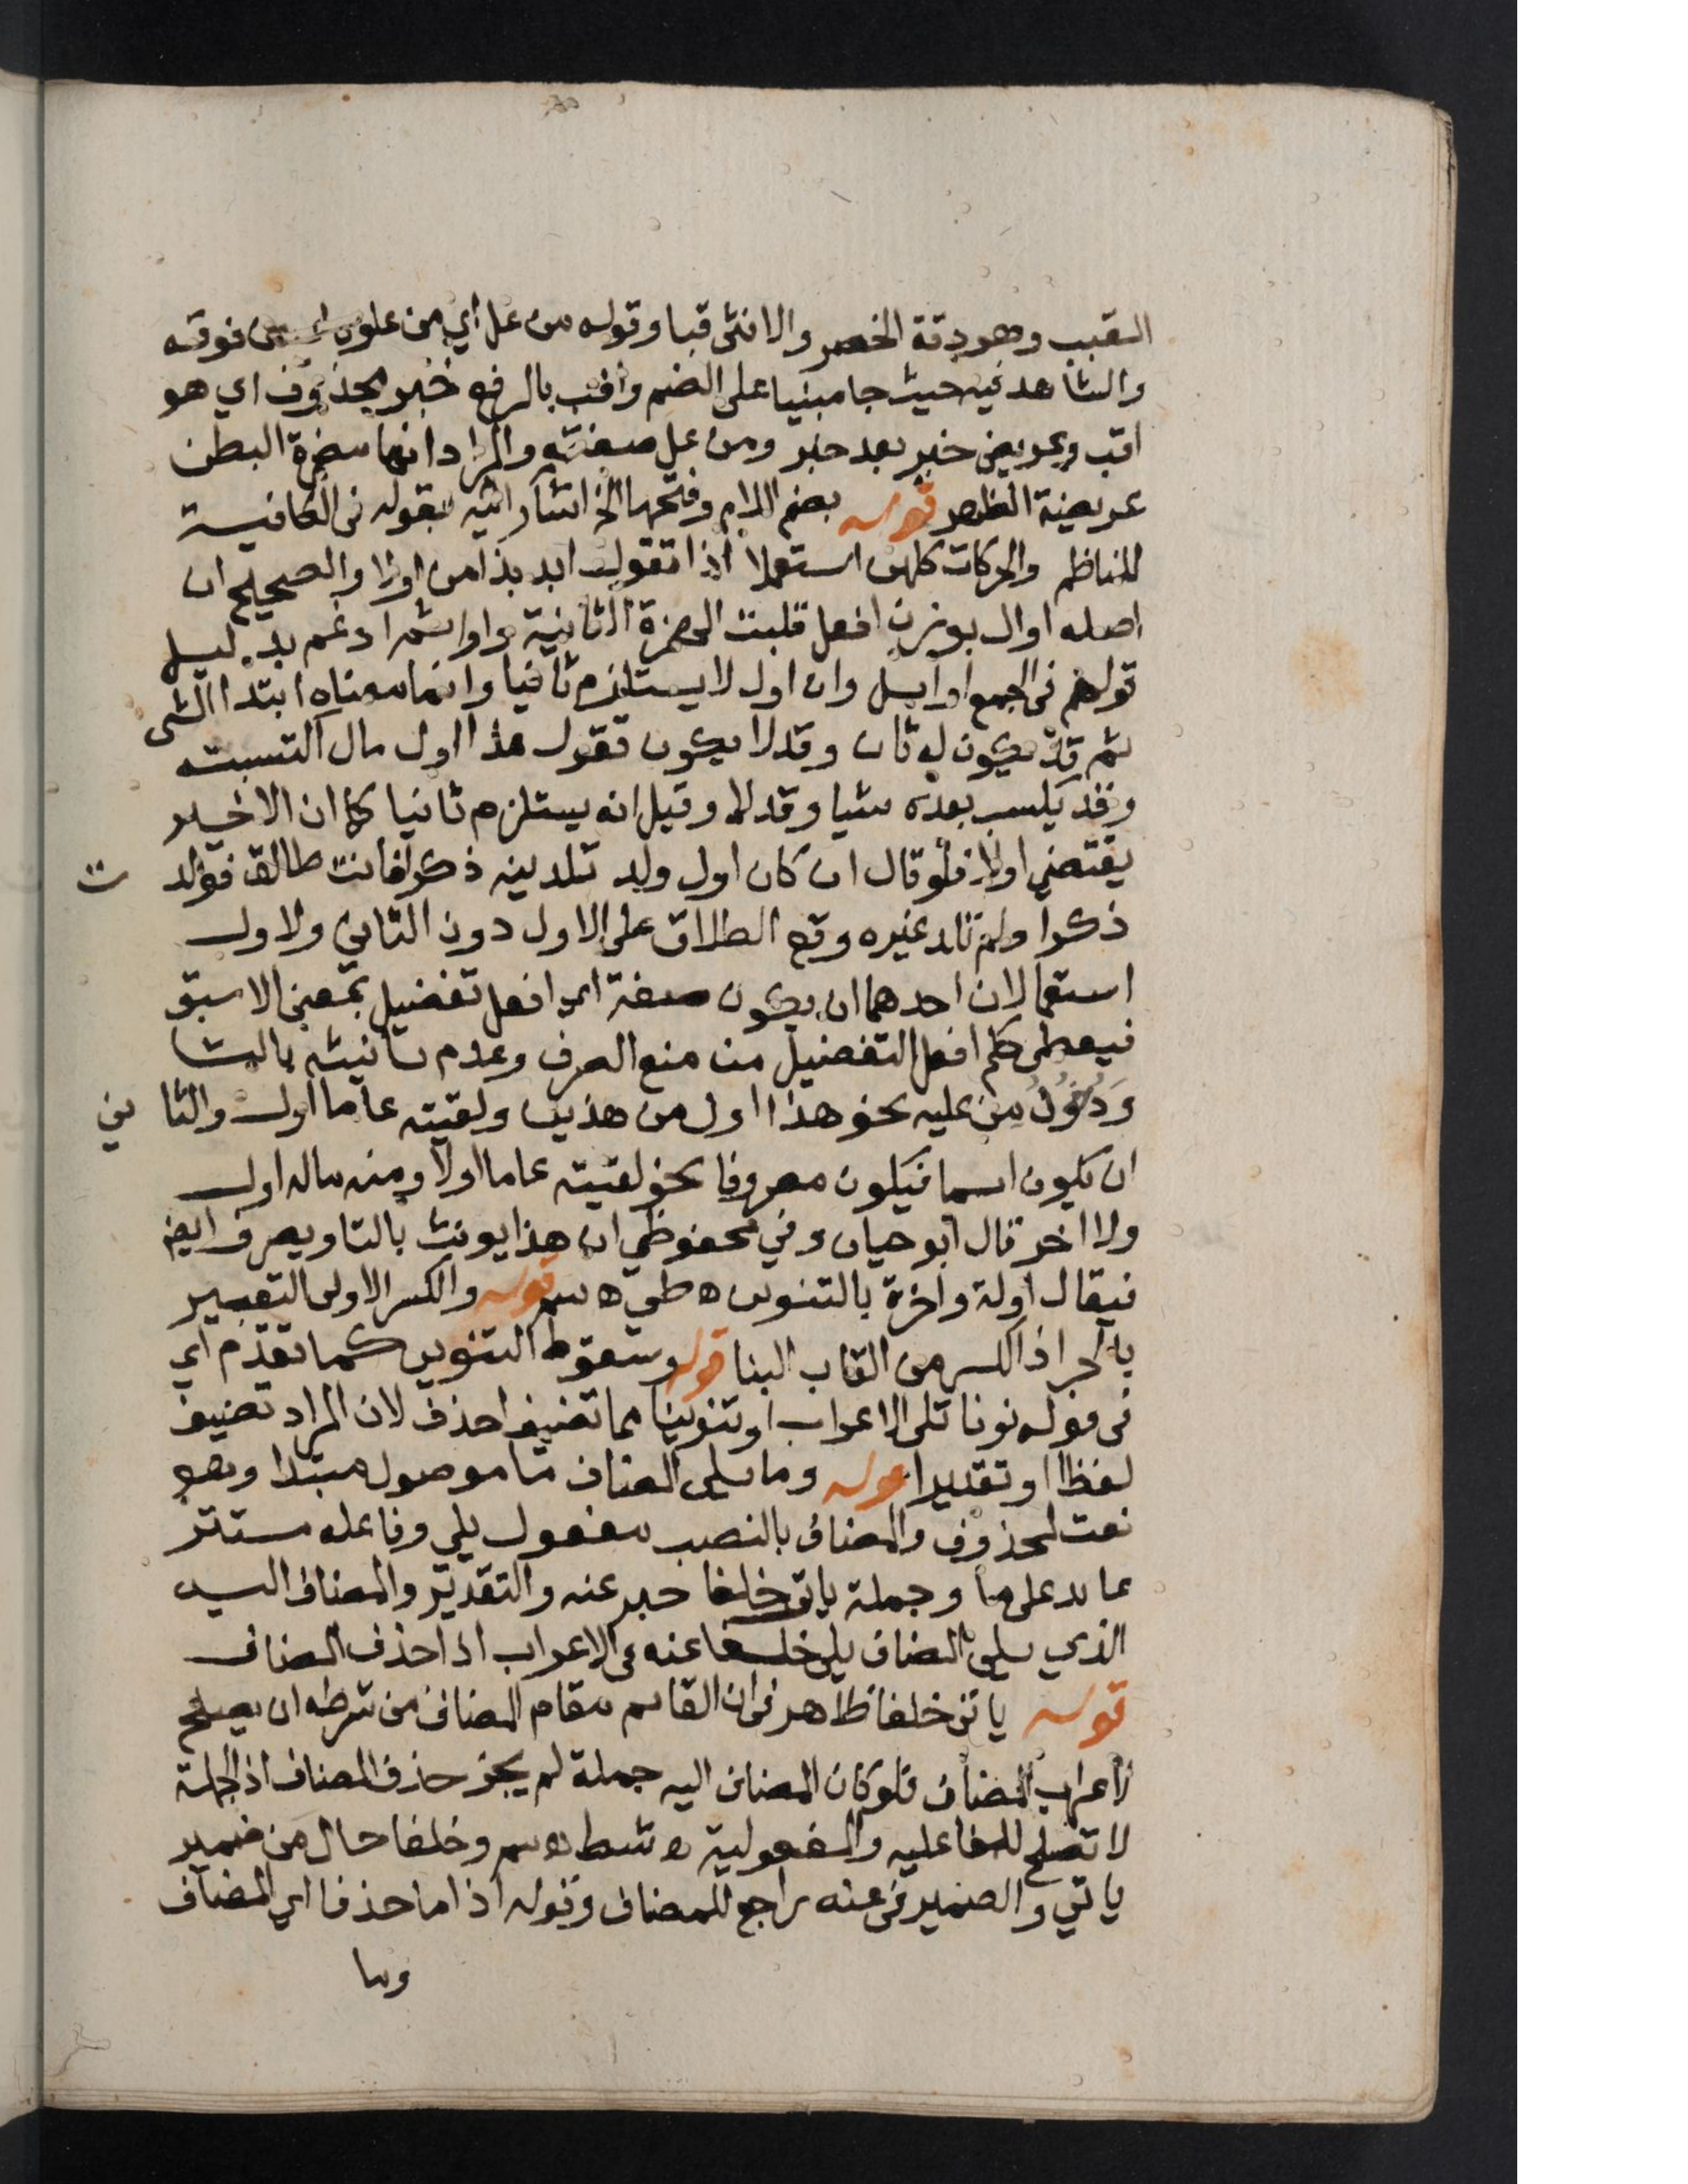 القبب وهو دقة الخصر والانثى قبا وقوله من عل اي من علوه اي من فوقه
والشاهد فيه حيث جا مبنيا على الضم واقب بالرفع خبر لمحذوف اي هو
اقب وعريض خبر بعد خبر ومن عل صفته والمراد انها ضمرة البطن
عريضة الظهر قوله بضم اللام وفتحها الخ اشار اليه بقوله في الكافية
للناظم والحركات كلهن استعملا اذا تقول ابد بذا من اولا والصحيح ان
اصله اوال بوزن افعل قلبت الهمزة الثانية واوا ثم ادغم بدليل
قولهم في الجمع اوايل وان اول لا يستلزم ثانيا وانما معناه ابتدا الشي
ثم قد يكون له ثان وقد لا يكون تقول هذا اول مال اكتسبته
وقد يكسب بعده شيا وقد لا وقيل انه يستلزم ثانيا كما ان الاخير
يقتضي اولا فلو قال ان كان اول ولد تلدينه ذكرا فانت طالق فولد ت
ذكرا ولم تلد غيره وقع الطلاق على الاول دون الثاني ولاول
استعمالان احدهما ان يكون صفة اي افعل تفضيل بمعنى الاسبق
فيعطى حكم افعل التفضيل من منع الصرف وعدم تانيثه بالتا
ودخول من عليه نحو هذا اول من هذين ولقيته عاما اول والثا ني
ان يكون اسما فيكون مصروفا نحو لقيته عاما اولا ومنه ماله اول
ولا اخر قال ابو حيان وفي محفوظي ان هذا يونث بالتا ويصرف ايض
فيقال اولة واخرة بالتنوين ه طي ه سم قوله والكسر الاولى التعبير
بالجر اذ الكسر من القاب البنا قوله وسقوط التنوين كما تقدم اي
في قوله نونا تلى الاعراب او تنوينا مما تضيف احذف لان المراد تضيف
لفظا او تقديرا قوله وما يلي المضاف ما موصول مبتدا وهو
نعت لمحذوف والمضاف بالنصب مفعول يلي وفاعله مستتر
عايد على ما وجملة ياتي خلفا خبر عنه والتقدير والمضاف اليه
الذي يلي المضاف يلي خلفا عنه في الاعراب اذا حذف المضاف
قوله ياتي خلفا ظاهر في ان القايم مقام المضاف من شرطه ان يصلح
لاعراب المضاف فلو كان المضاف اليه جملة لم يجز حذف المضاف اذ الجملة
لا تصلح للفاعليه والمفعولية ه شط ه سم وخلفا حال من ضمير
ياتي والضمير في عنه راجع للمضاف وقوله اذا ما حذفا اي المضاف
وما